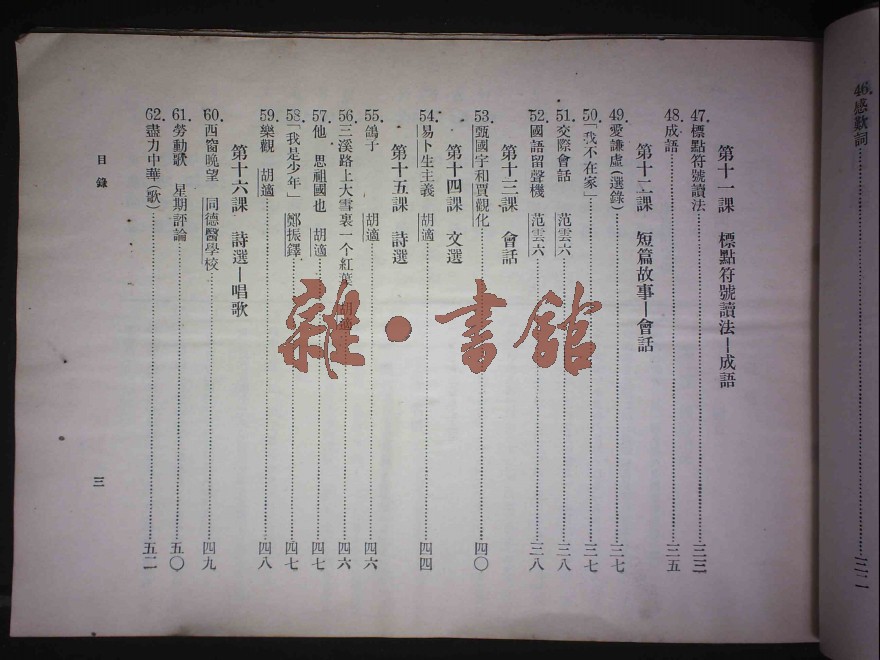 46.感歎詞……三二
第十一課　標點符號讀法—成語
47.標點符號讀法……三三
48.成語……三五
第十二課　短篇故事—會話
49.愛謙虛(選錄)……三七
50.「我不在家」……三七
51.交際會話　范雲六……三八
52.國語留聲機　范雲六……三八
第十三課　會話
53.甄國宇和賈觀化……四〇
第十四課　文選
54.易卜生主義　胡適……四四
第十五課　詩選
55.鴿子　胡適……四六
56.三溪路上大雪裏一个紅葉　胡適……四六
57.他　思祖國也　胡適……四七
58.「我是少年」　鄭振鐸……四七
59.樂觀　胡適……四八
第十六課　詩選—唱歌
60.西窗晚望　同德醫學校……四九
61.勞動歌　星期評論……五〇
62.盡力中華(歌)……五二
目錄
三
雜·書館